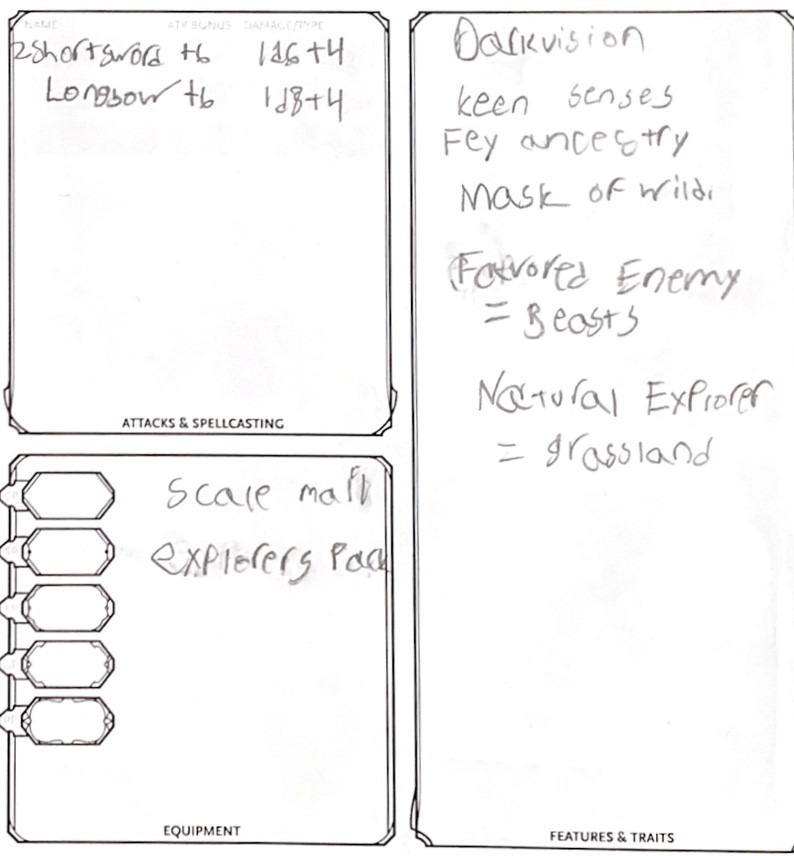 NAME ATK BONUS DAMAGE/TYPE
2 Shortsword +6 1d6+4
Longbow +6 1d8+4
ATTACKS & SPELLCASTING
Scale mail
explorers Pack
EQUIPMENT
Darkvision
keen senses
Fey ancestry
Mask of wild
Favored Enemy
= Beasts
Natural Explorer
= grassland
FEATURES & TRAITS